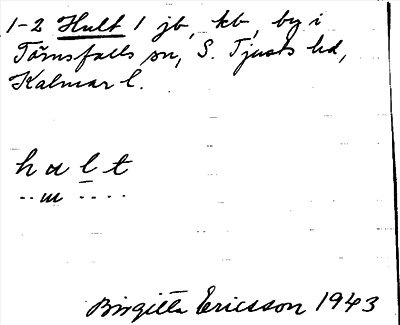 1-2 Hult 1 jb, kb, by i
Törnsfalls sn, S. Tjusts hd,
Kalmar l.
h u l t
.. m ....
Birgitta Ericsson 1943